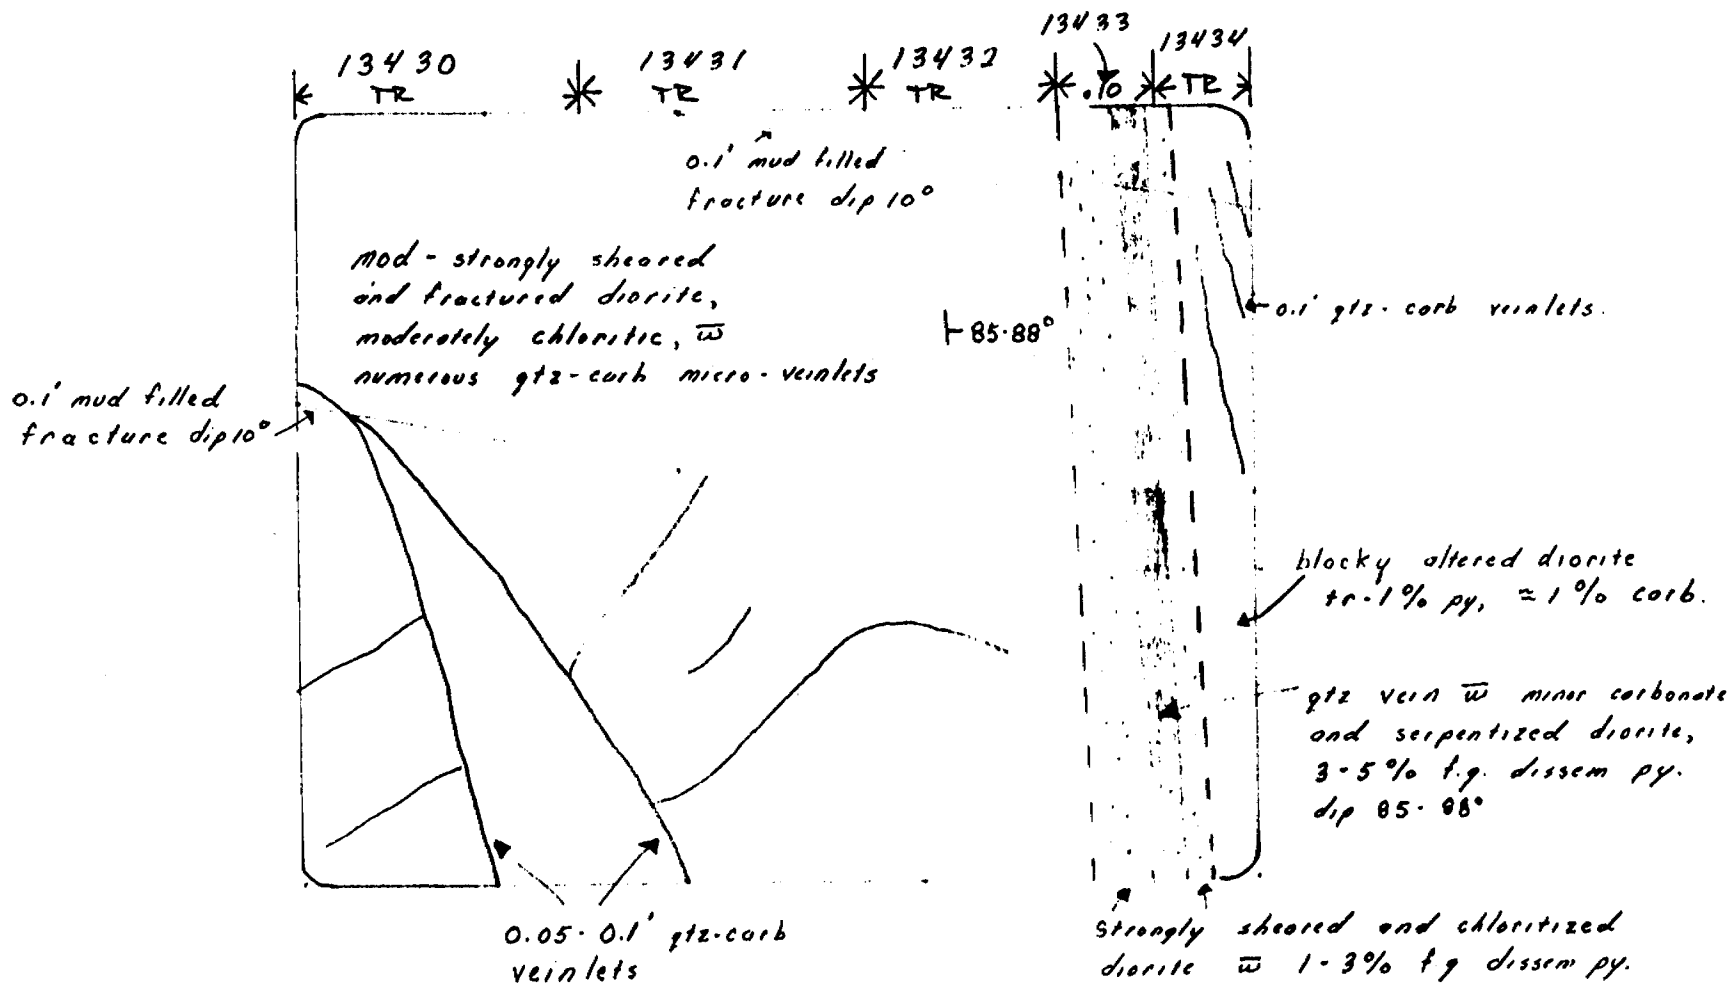 13430
TR
13431
TR
13432
TR
13433
.10
13434
TR
0.1' mud filled
fracture dip 10°
mod - strongly sheared
and fractured diorite,
moderately chloritic, w̅
numerous qtz-carb micro-veinlets
85-88°
0.1' qtz-carb veinlets.
0.1' mud filled
fracture dip 10°
blocky altered diorite
tr-1% py, ≈ 1% carb.
qtz vein w̅ minor carbonate
and serpentized diorite,
3-5% f.g. dissem py.
dip 85-88°
0.05-0.1' qtz-carb
veinlets
strongly sheared and chloritized
diorite w̅ 1-3% f.g dissem py.